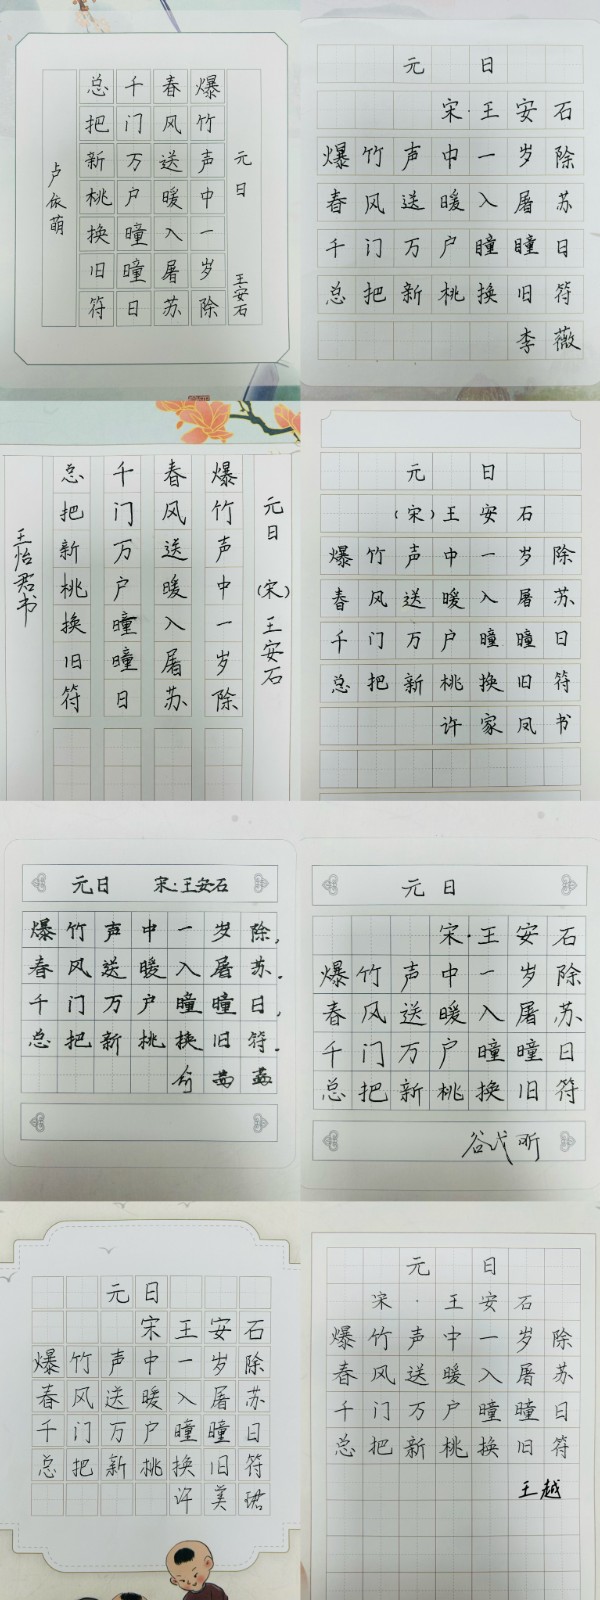 元日 王安石
爆竹声中一岁除
春风送暖入屠苏
千门万户曈曈日
总把新桃换旧符
卢依萌
元日
宋·王安石
爆竹声中一岁除
春风送暖入屠苏
千门万户瞳瞳日
总把新桃换旧符
李薇
元日 (宋) 王安石
爆竹声中一岁除
春风送暖入屠苏
千门万户曈曈日
总把新桃换旧符
王怡君书
元日
(宋)王安石
爆竹声中一岁除
春风送暖入屠苏
千门万户曈曈日
总把新桃换旧符
许家凤书
元日 宋·王安石
爆竹声中一岁除,
春风送暖入屠苏.
千门万户曈曈日,
总把新桃换旧符.
元日
宋·王安石
爆竹声中一岁除
春风送暖入屠苏
千门万户曈曈日
总把新桃换旧符
谷 昕
元日
宋王安石
爆竹声中一岁除
春风送暖入屠苏
千门万户曈曈日
总把新桃换旧符
许美珺
元日
宋·王安石
爆竹声中一岁除
春风送暖入屠苏
千门万户曈曈日
总把新桃换旧符
王越